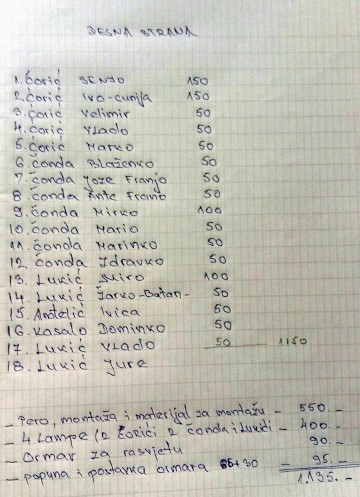 DESNA STRANA
1. Ćorić SENJO 150
2. Ćorić Ivo-cunija 150
3. Ćorić Velimir 50
4. Ćorić Vlado 50
5. Ćorić Marko 50
6. Čonda Blaženko 50
7. Čonda Joze Franjo 50
8. Čonda Ante Frano 50
9. Čonda Mirko 100
10. Čonda Mario 50
11. Čonda Marinko 50
12. Čonda Zdravko 50
13. Lukić Miro 100
14. Lukić Žarko-Batan- 50
15. Anđelić Ivica 50
16. Kasalo Dominko 50
17. Lukić Vlado 50 1150
18. Lukić Jure
- Pero, montaža i materijal za montažu - 550.-
- 4 Lampe (2 Ćorići 2 Čonda i Lukići - 400.-
- Ormar za rasvjetu 90.-
- popuna i postavka ormara 65+30 - 95.-
1.135.-